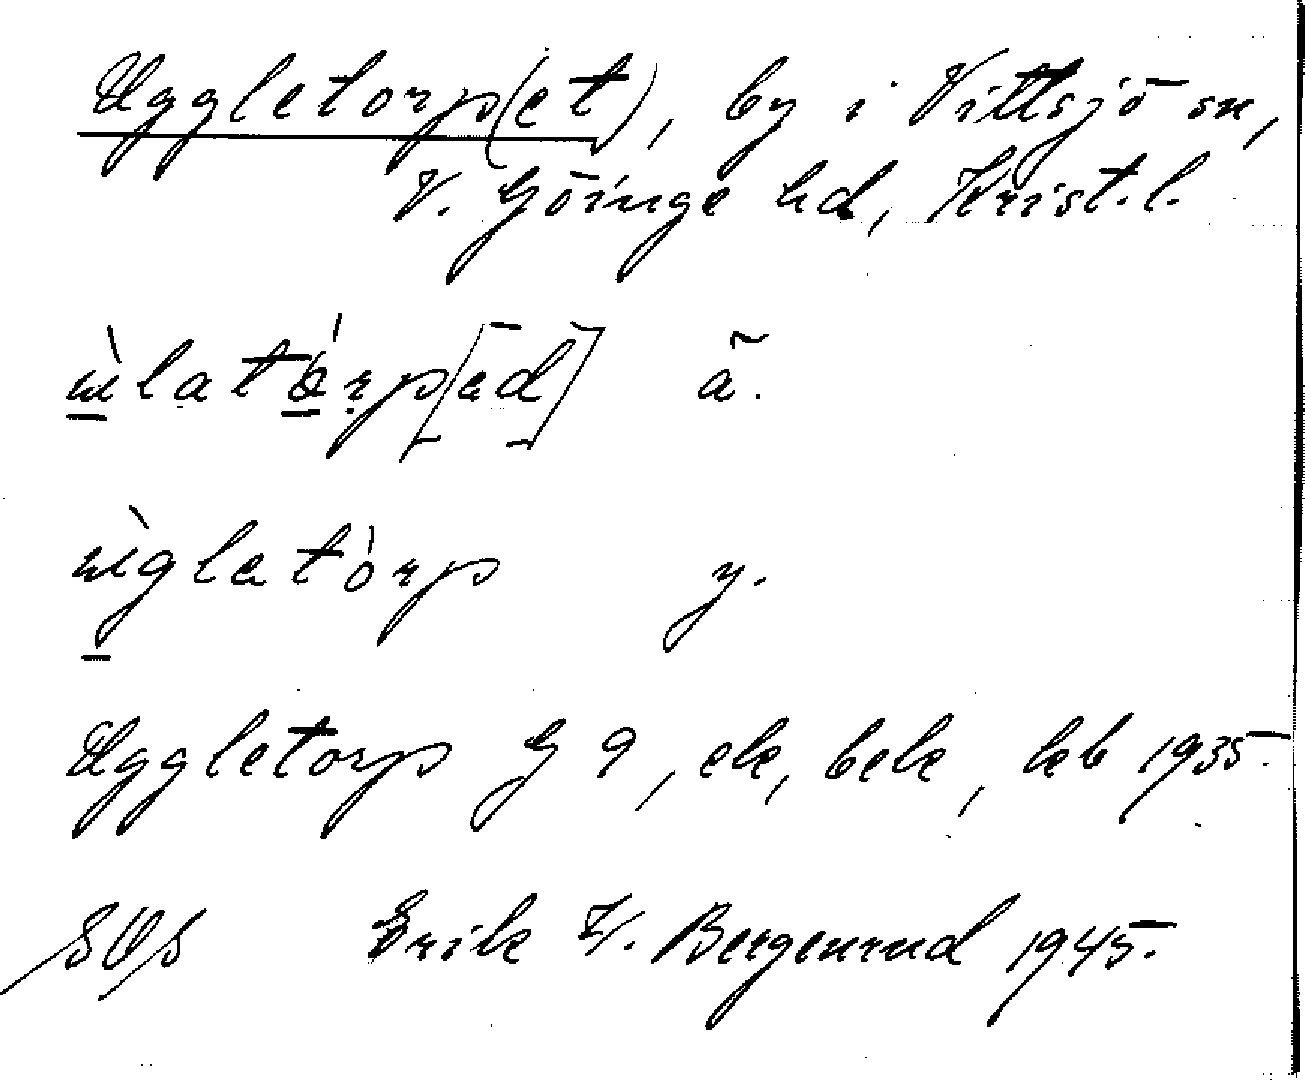 Uggletorp(et), by i Vittsjö sn,
V. Göinge hd, Krist.l.
ùlatórp[ad] ã.
ùglatórp y.
Uggletorp G 9, ek, bek, kb 1935.
SOS Erik H. Bergenrud 1945.